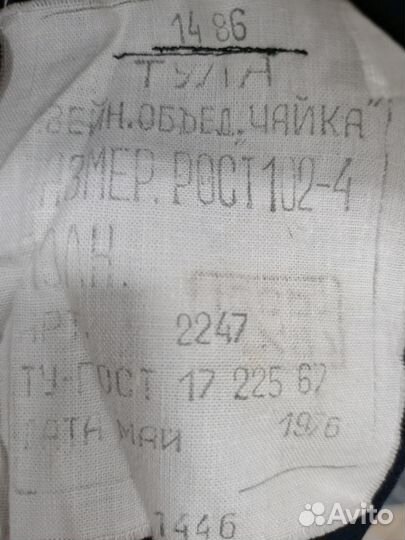 1486
ТУЛА
ВЕЙН.ОБЪЕД.„ЧАЙКА"
ЗМЕР. РОСТ 102-4
АРТ. 2247
ТУ-ГОСТ 17 225 67
ДАТА МАЙ 1976
1446
Avito